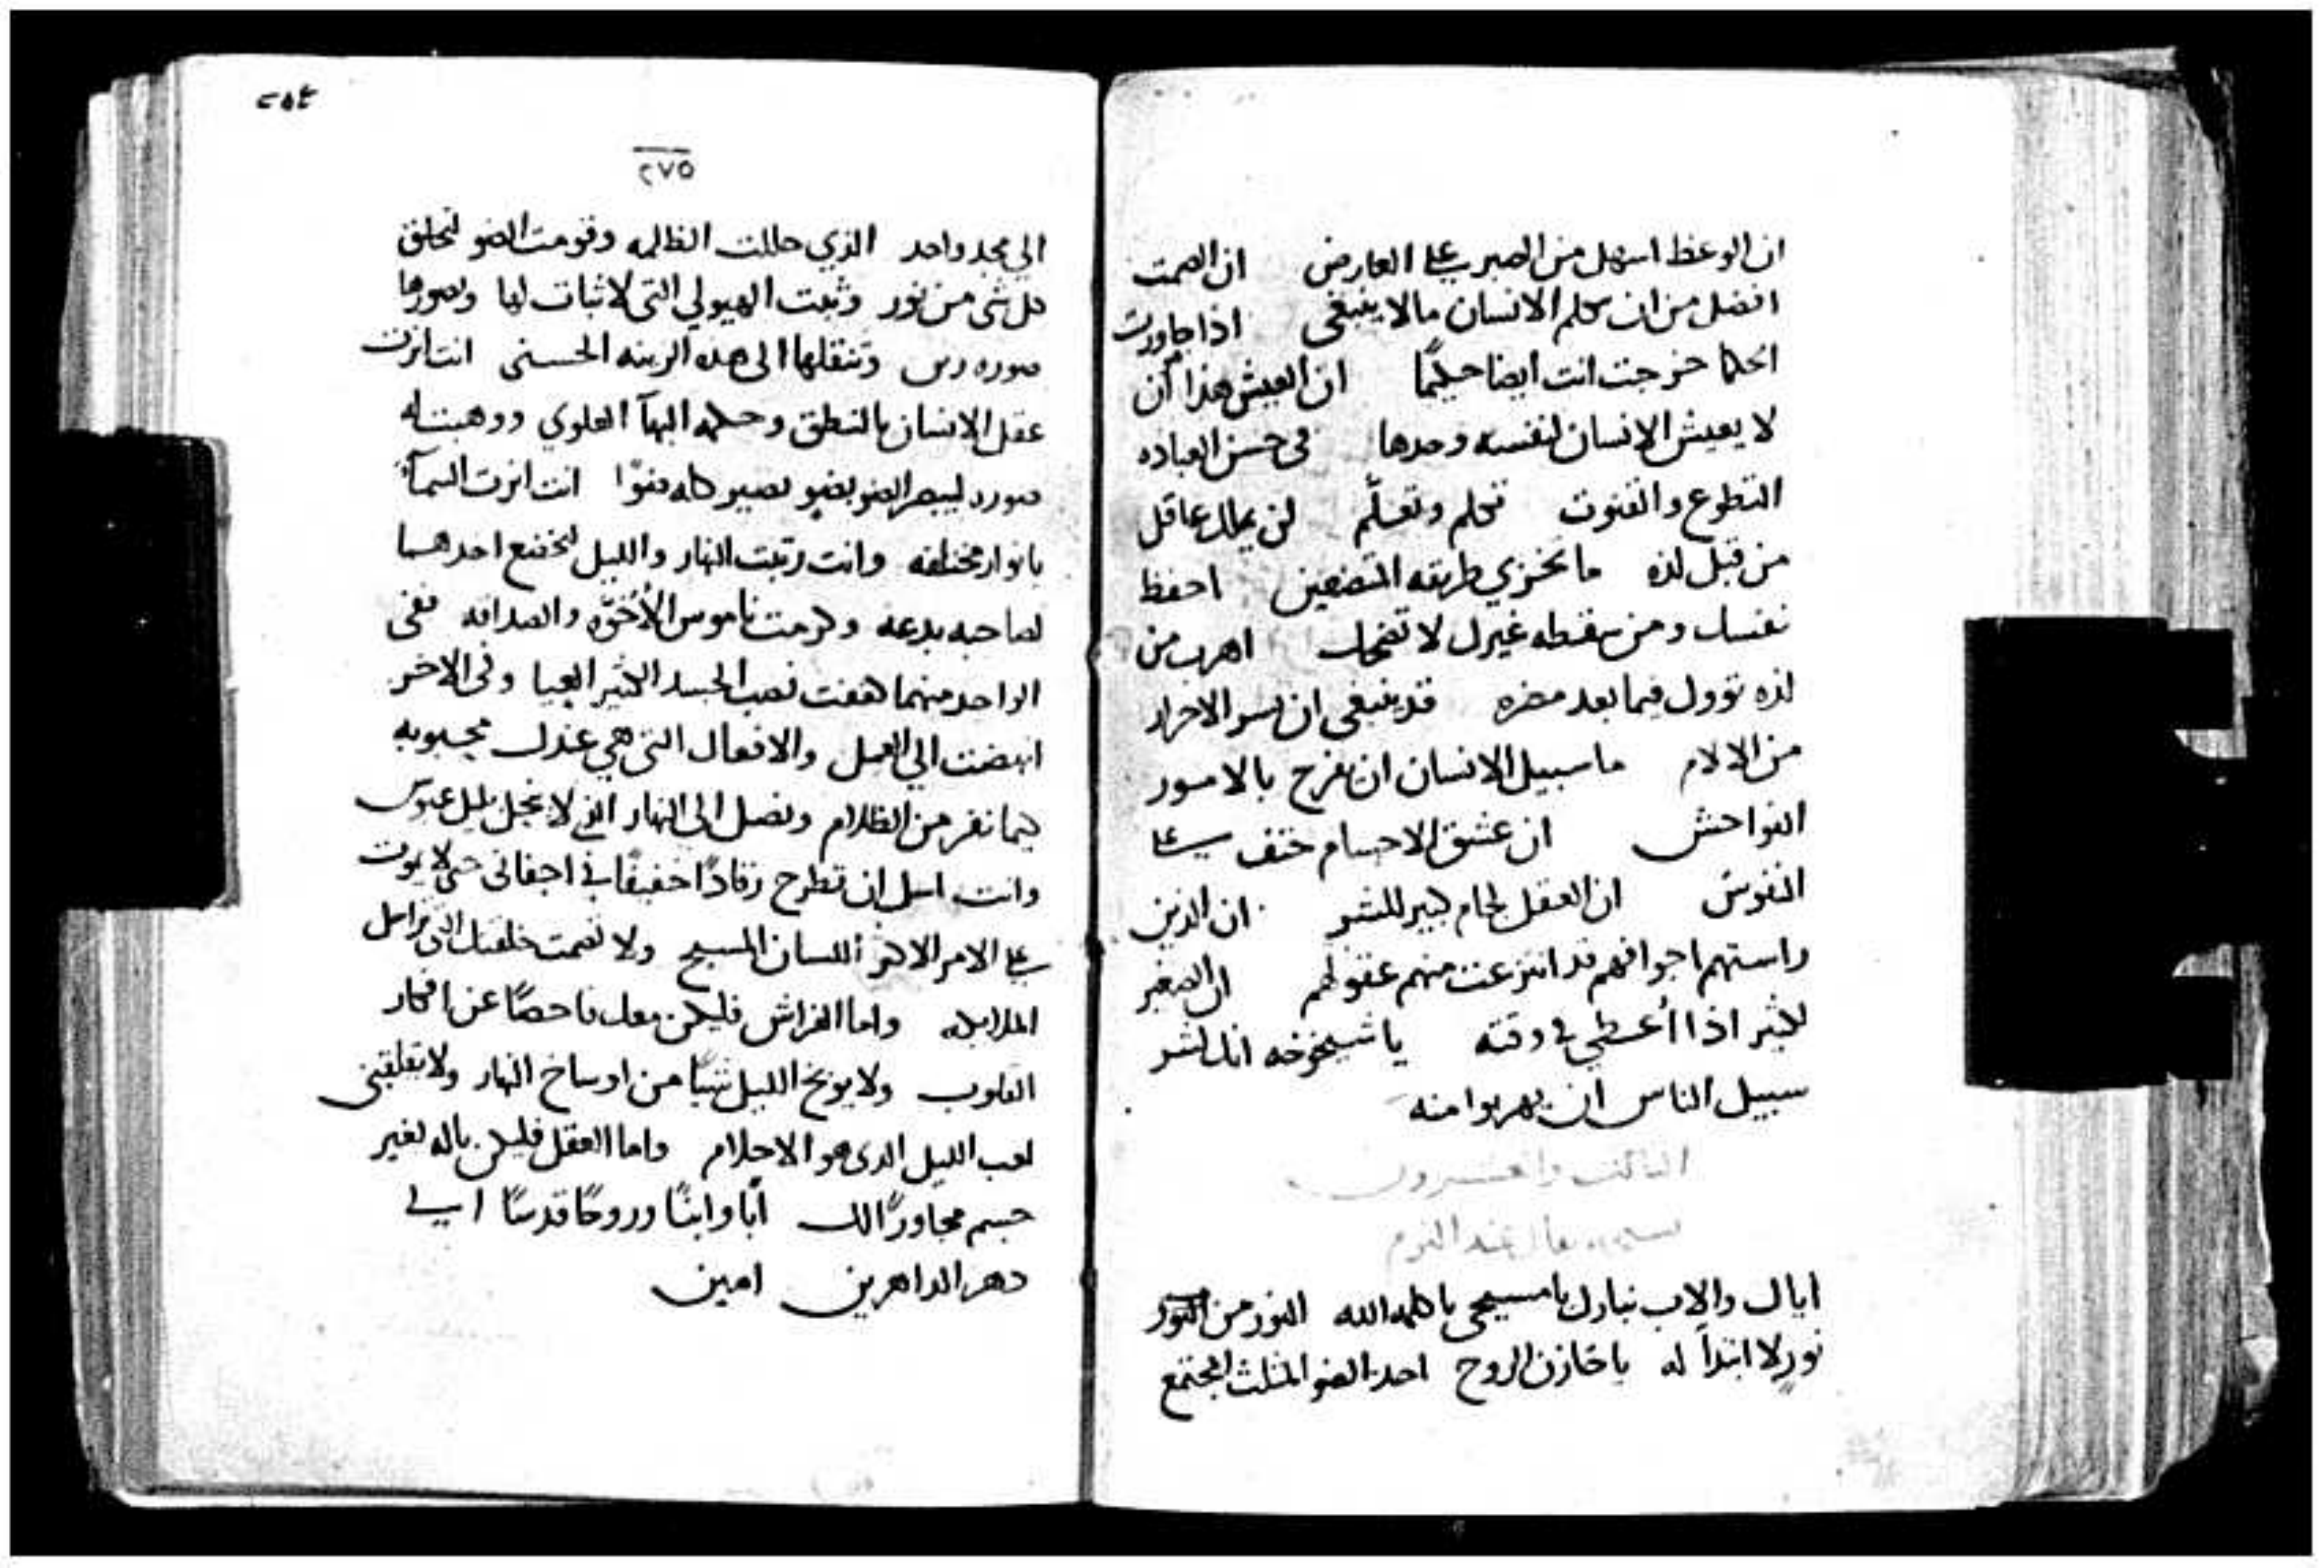 ان الوعظ اسهل من الصبر على العارض ان الصمت
افضل من ان يكلم الانسان مالا ينبغي اذا جاورت
الحكما خرجت انت ايضا حكيمًا ان العيش هذا ان
لا يعيش الانسان لنفسه وحدها في حسن العباده
التطوع والقنوت تحلم وتعلّم لن يملك عاقل
من قبل لذه ما تخزي طريقه المتضعين احفظ
نفسك ومن سقطه غيرك لا تضحك اهرب من
لذه توول فيما بعد مضره قد ينبغي ان الاحرار
من الالام ما سبيل الانسان ان يفرح بالامور
الفواحش ان عشق الاجسام حتف على
النفوس ان العقل لجام كبير للبشر ان الذين
راستهم اجوافهم قد انتزعت منهم عقولهم ان الصغير
كثير اذا أعطي في وقته يا شيخوخه انك لشر
سبيل الناس ان يهربوا منه
الثالث والعشرون
عند النوم
اياك والاب نبارك يا مسيحي يا كلمه الله النور من النور
نورٍ لا ابتدأ له يا خازن الروح احد الضو المثلث المجتمع
٢٥٤
٢٧٥
الي مجد واحد الذي حللت الظلمه وقومت الضو لتخلق
كل شى من نور وثبت الهيولي التى لا ثبات لها وتصورها
صوره وتنقلها الى هذه الزينه الحسنى انت انرت
عقل الانسان بالنطق وحكمه البهآ العلوي ووهبت له
صوره ليبصر الضو بضو يصير كله ضوًا انت انرت السمآ
بانوار مختلفه وانت رتبت النهار والليل ليخضع احدهما
لصاحبه بدعه وكرمت ناموس الأخوّه والصداقه ففي
الواحد منهما تعب الجسد الكثير العيا وفى الاخر
انهضت الي العمل والافعال التى هي عندك محبوبه
كيما نفر من الظلام ونصل الى النهار الذي لا بليل عبوس
وانت اسل ان تطرح رقادًا خفيفًا في اجفانى حتى لا يموت
على الامر الاكثر اللسان المسبح ولا تصمت خلقتك التى
الملايكه واما الفراش فليكن معك فاحصًا عن افكار
القلوب ولا يوبخ الليل شيًا من اوساخ النهار ولا تقلقني
لعب الليل الدى هو الاحلام واما العقل فليكن باله لغير
جسم مجاورًا لك أبًا وابنًا وروحًا قدسًا الي
دهر الداهرين امين